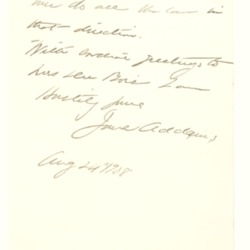 we do all we can in
that direction.
With cordial greetings to
Mrs Du Bois I am
Hastily yours
Jane Addams
Aug 24 1908